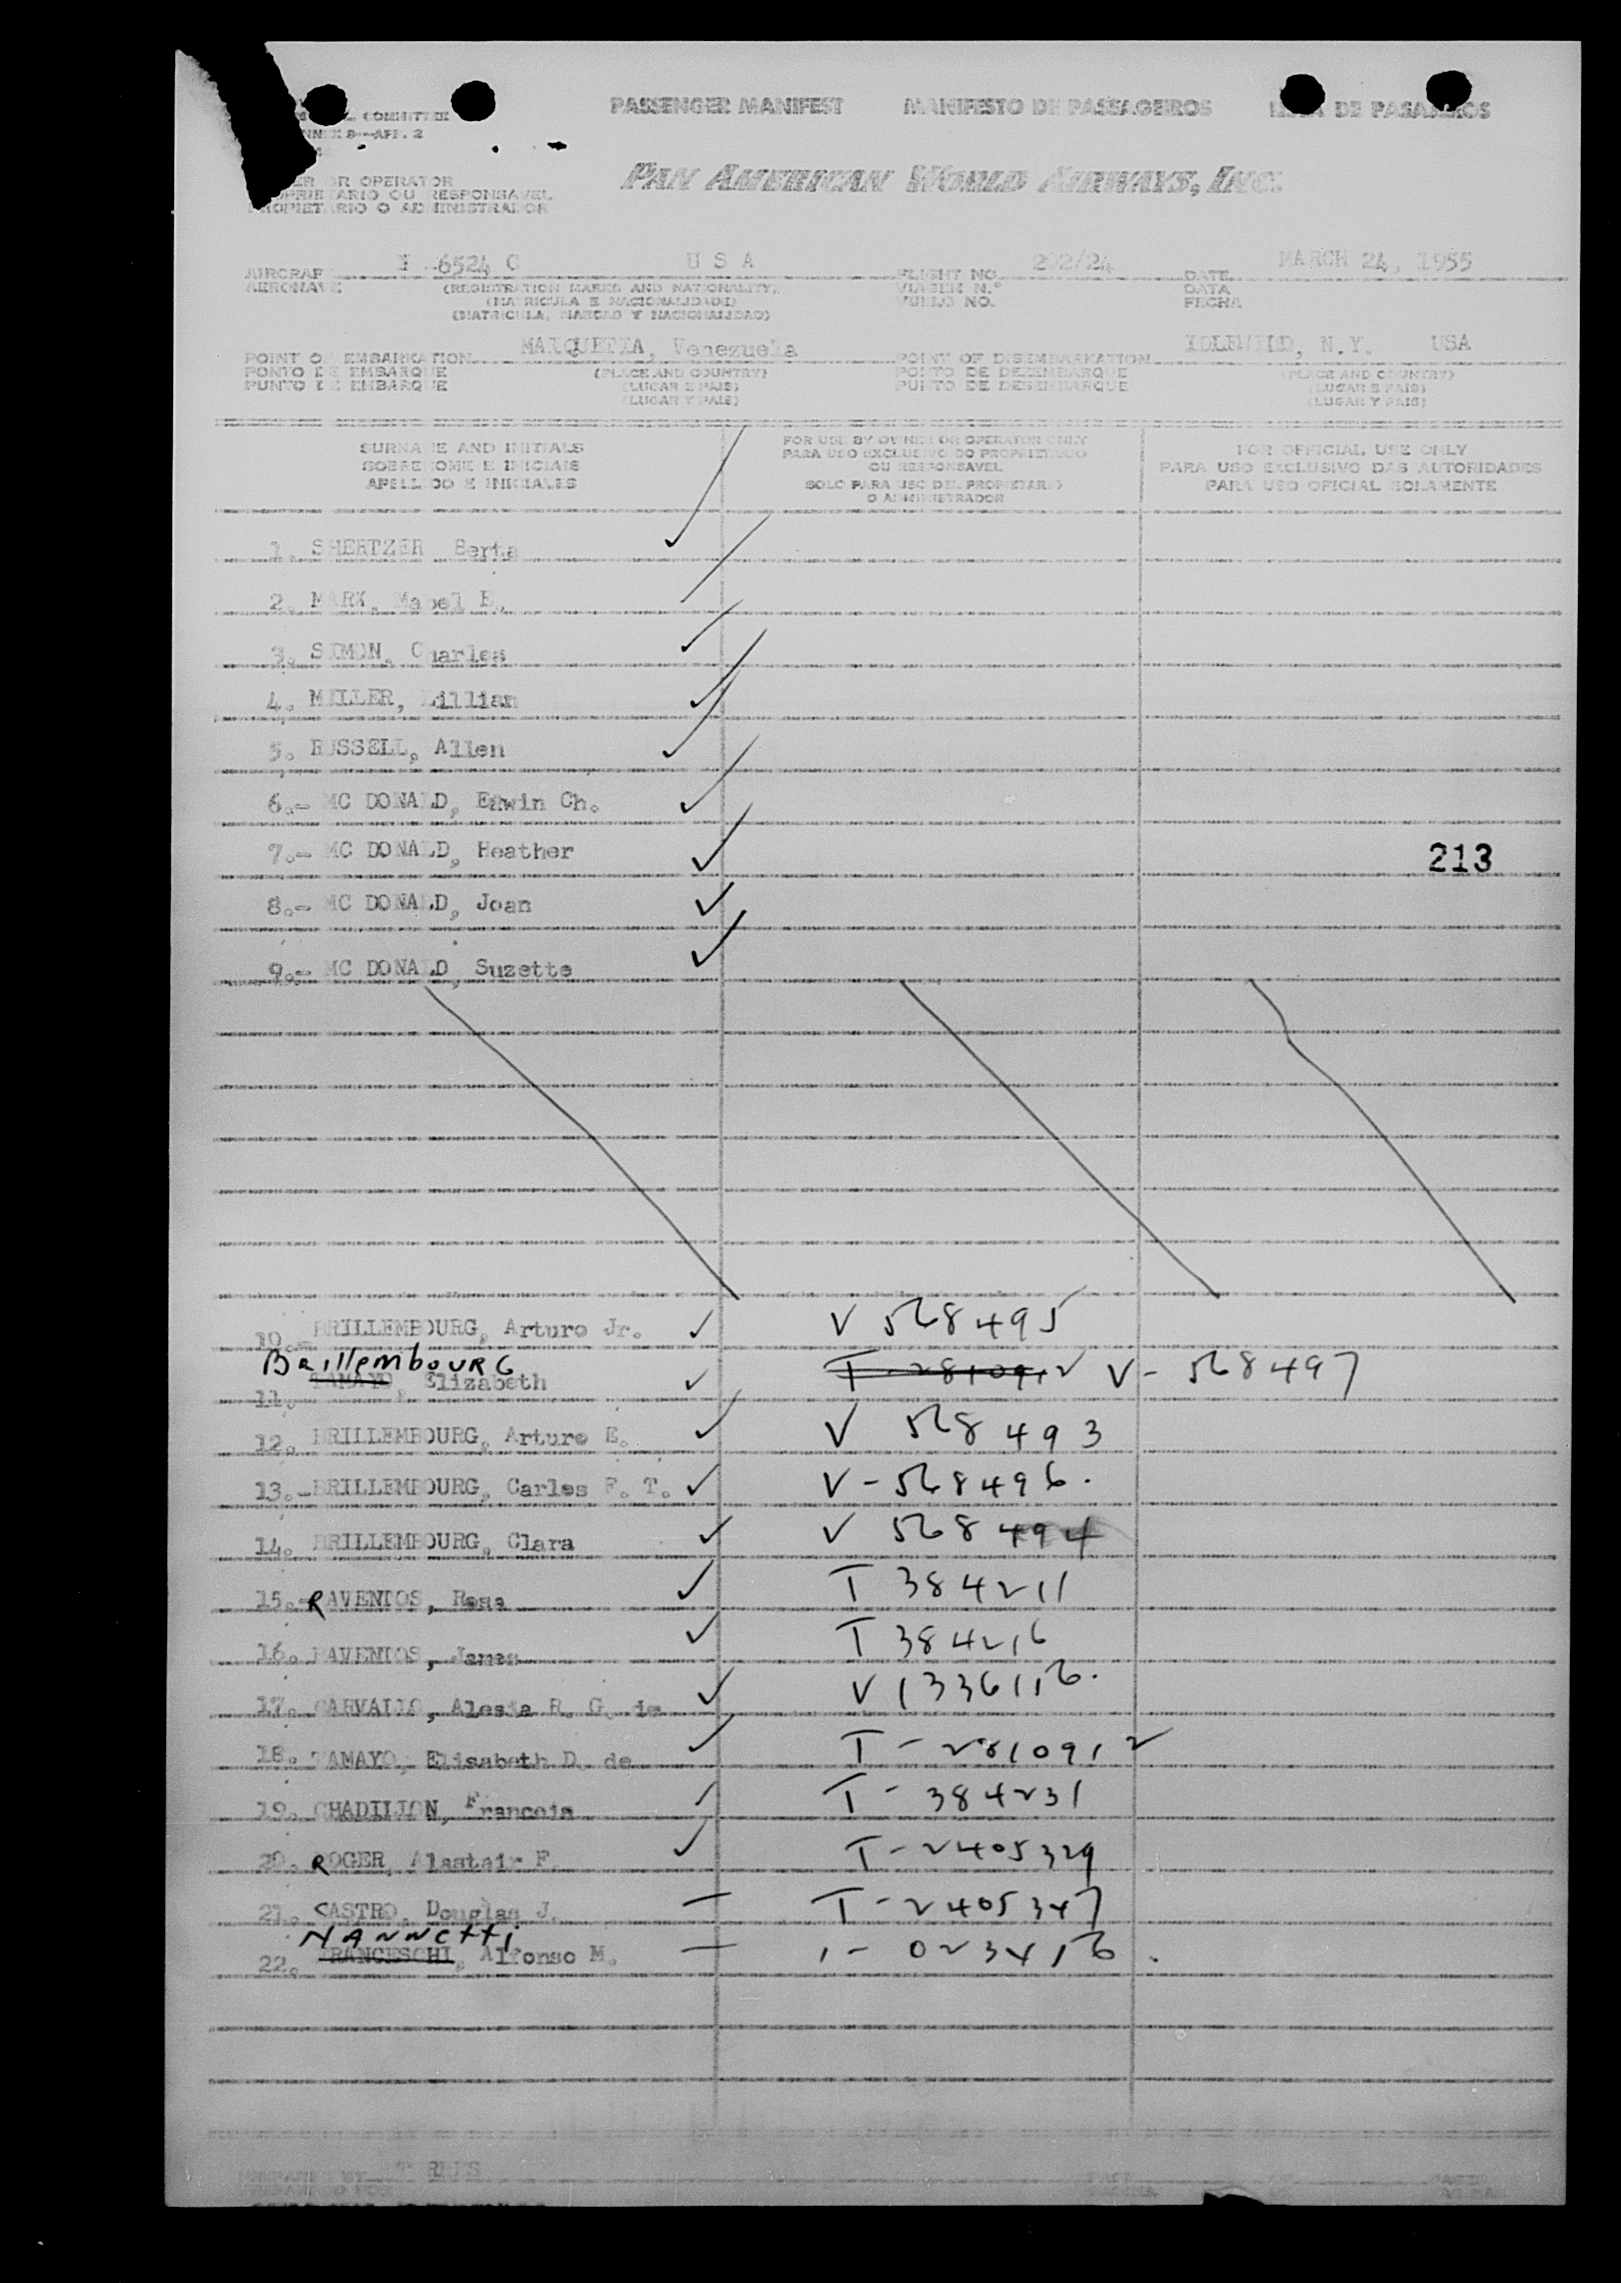 PASSENGER MANIFEST MANIFESTO DE PASSAGEIROS LISTA DE PASAJEROS
COMMITTEE
ANNEX 9—APP. 2
PAN AMERICAN WORLD AIRWAYS, INC.
OWNER OR OPERATOR
PROPRIETARIO OU RESPONSAVEL
PROPIETARIO O ADMINISTRADOR
AIRCRAFT 6524 C U S A FLIGHT NO. 202/24 DATE MARCH 24, 1955
AERONAVE (REGISTRATION MARKS AND NATIONALITY) VIAGEM N.º DATA
(MATRICULA E NACIONALIDADE) VUELO NO. FECHA
(MATRICULA, MARCAS Y NACIONALIDAD)
POINT OF EMBARKATION MAIQUETIA, Venezuela POINT OF DISEMBARKATION IDLEWILD, N.Y. USA
PONTO DE EMBARQUE (PLACE AND COUNTRY) PONTO DE DEZEMBARQUE (PLACE AND COUNTRY)
PUNTO DE EMBARQUE (LUGAR E PAIS) PUNTO DE DESEMBARQUE (LUGAR E PAIS)
(LUGAR Y PAIS) (LUGAR Y PAIS)
SURNAME AND INITIALS FOR USE BY OWNER OR OPERATOR ONLY FOR OFFICIAL USE ONLY
SOBRENOME E INICIAIS PARA USO EXCLUSIVO DO PROPRIETARIO PARA USO EXCLUSIVO DAS AUTORIDADES
APELLIDO E INICIALES OU RESPONSAVEL PARA USO OFICIAL SOLAMENTE
SOLO PARA USO DEL PROPIETARIO
O ADMINISTRADOR
1. SHERTZER Berta
2. MARK, Mabel E.
3. SIMON, Charles
4. MILLER, Lillian
5. RUSSELL, Allen
6.- MC DONALD, Edwin Ch.
7.- MC DONALD, Heather 213
8.- MC DONALD, Joan
9.- MC DONALD, Suzette
10.- BRILLEMBOURG, Arturo Jr. V 568495
Brillembourg
11. TAMAYO, Elizabeth T-2810912 V-568497
12. BRILLEMBOURG, Arturo E. V 568493
13.- BRILLEMBOURG, Carlos F. T. V-568496.
14. BRILLEMBOURG, Clara V 568494
15.- RAVENTOS, Rosa T 384211
16. RAVENTOS, James T 384216
17. CARVALLO, Alesia R. G. de V 1336116.
18. TAMAYO, Elisabeth D. de T-2810912
19. CHADILION, Francois T-384231
20. ROGER, Alastair F. T-2405329
21. CASTRO, Douglas J. T-2405347
NANNetti
22. FRANCESCHI, Alfonso M. 1-023416.